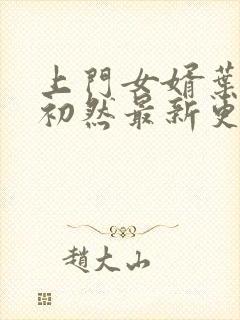 上門女婿葉
初然最新更
趙大山